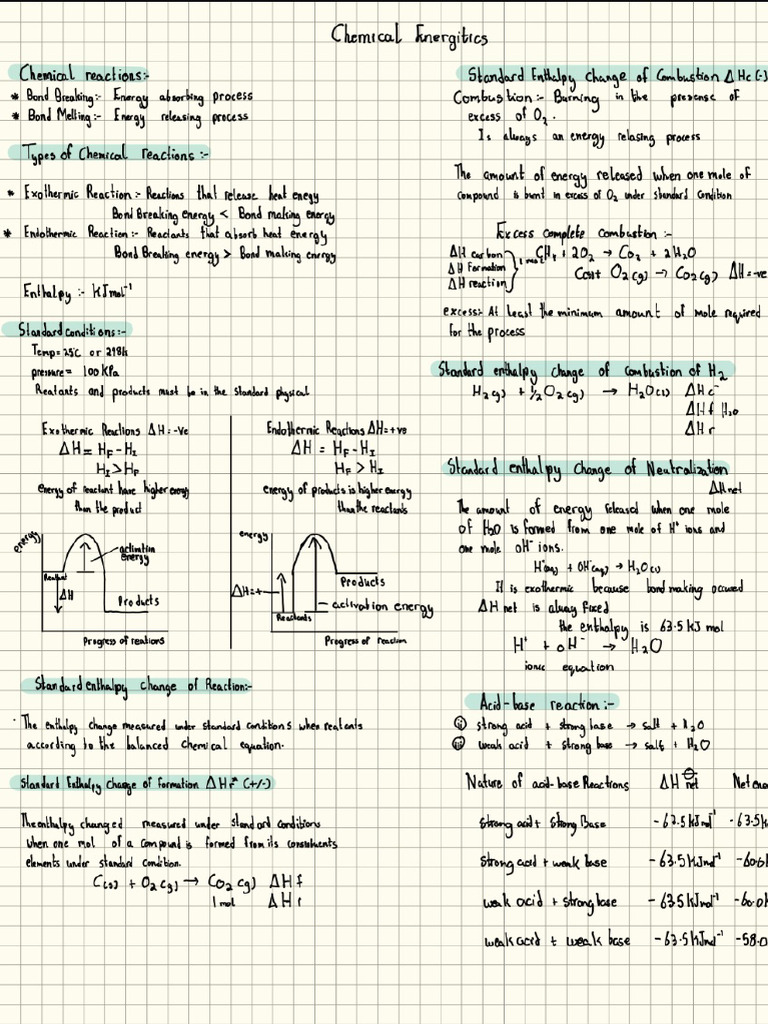 Chemical Energitics
Chemical reactions:-
* Bond Breaking:- Energy absorbing process
* Bond Melting:- Energy releasing process
Types of Chemical reactions:-
* Exothermic Reaction:- Reactions that release heat enegy
Bond Breaking energy < Bond making energy
* Endothermic Reaction:- Reactants that absorb heat energy
Bond Breaking energy > Bond making energy
Enthalpy:- kJmol⁻¹
Standard conditions:-
Temp= 25°C or 298k
pressure= 100kPa
Reatants and products must be in the standard physical
Exothermic Reactions ΔH=-ve
ΔH= HF-HI
HI>HF
energy of reactant have higher energy
than the product
energy
activation
energy
Reactant
ΔH
Products
Progress of reations
Endothermic Reactions ΔH=+ve
ΔH = HF-HI
HF>HI
energy of products is higher energy
than the reactants
energy
Products
ΔH=+
activation energy
Reactants
Progress of reaction
Standard enthalpy change of Reaction:-
· The enthalpy change measured under standard conditions when reatants
according to the balanced chemical equation.
Standard Enthalpy Change of formation ΔHf° (+/-)
The enthalpy changed measured under standard conditions
when one mol of a compound is formed from its constituents
elements under standard condition.
C(s) + O2(g) → CO2(g) ΔHf
1mol ΔHr
Standard Enthalpy change of Combustion ΔHc(-)
Combustion:- Burning in the presense of
excess of O2.
Is always an energy relasing process
The amount of energy released when one mole of
compound is burnt in excess of O2 under standard condition
Excess complete combustion:-
ΔH carbon
ΔH formation
ΔH reaction
1 mol
CH4 + 2O2 → CO2 + 2H2O
C(s)+ O2(g) → CO2(g) ΔH=-ve
excess:- At least the minimum amount of mole required
for the process
Standard enthalpy change of combustion of H2
H2(g) + ½O2(g) → H2O(l) ΔHc⁻
ΔHf H2O
ΔHr
Standard enthalpy change of Neutralization
ΔHnet
The amount of energy released when one mole
of H2O is formed from one mole of H⁺ ions and
one mole OH⁻ ions.
H⁺(aq) + OH⁻(aq) → H2O(l)
It is exothermic because bond making occured
ΔHnet is alway fixed
the enthalpy is 63.5 kJ mol
H⁺ + OH⁻ → H2O
ionic equation
Acid-base reaction:-
strong acid + strong base → salt + H2O
weak acid + strong base → salt + H2O
Nature of acid-base Reactions ΔH⊖net Net
strong acid + Strong Base -63.5kJmol⁻¹ -63.5k
strong acid + weak base -63.5kJmol⁻¹
weak acid + strong base -63.5kJmol⁻¹ -60.0k
weak acid + weak base -63.5kJmol⁻¹ -58.0